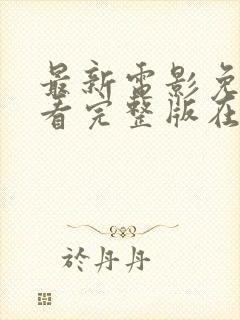 最新电影免
看完整版在
於丹丹